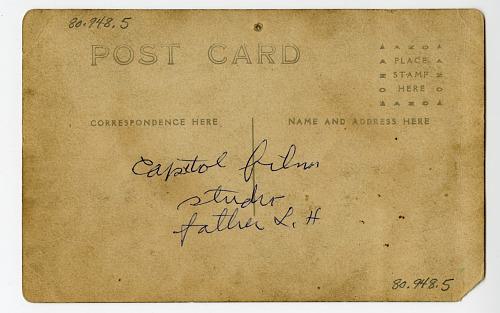 80.948.5
POST CARD
AZKO
PLACE
STAMP
HERE
AZKO
CORRESPONDENCE HERE
NAME AND ADDRESS HERE
Capitol films
studio
father L. H
80.948.5